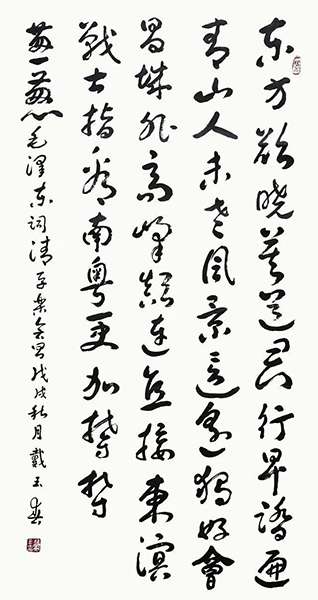 东方欲晓莫道君行早踏遍
青山人未老风景这边独好會
昌城外高峰颠连直接東溟
戰士指看南粤更加郁郁
葱葱毛泽东词清平乐会昌戊戌秋月戴玉